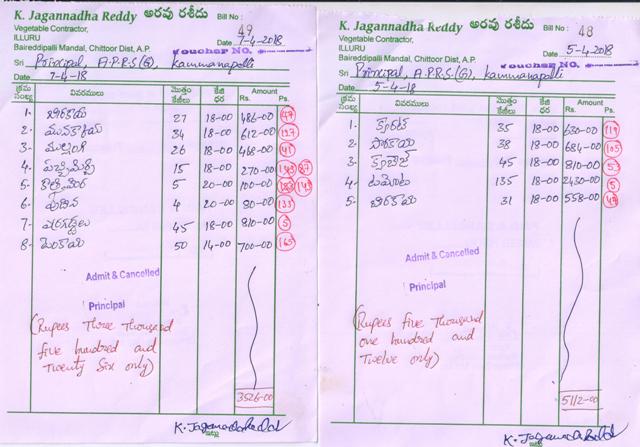 K. Jagannadha Reddy అరవు రశీదు Bill No : 49
Vegetable Contractor,
ILLURU Date 7-4-2018
Baireddipalli Mandal, Chittoor Dist, A.P. Voucher NO.
Sri Principal, A.P.R.S(G), Kammanapalli
Date 7-4-18
క్రమ సంఖ్య వివరములు మొత్తం కేజీలు కేజి ధర Amount Rs. Ps.
1- బీరకాయ 27 18-00 486-00 47
2- మునక్కాయ 34 18-00 612-00 127
3- ముల్లంగి 26 18-00 468-00 41
4- పచ్చిమిర్చి 15 18-00 270-00
5- కొత్తిమీర 5 20-00 100-00
6- పుదీన 4 20-00 80-00 133
7- ఎర్రగడ్డలు 45 18-00 810-00 5
8- వంకాయ 50 14-00 700-00 165
Admit & Cancelled
Principal
(Rupees Three Thousand
five hundred and
Twenty Six only)
3526-00
K. Jagannadha Reddy
K. Jagannadha Reddy అరవు రశీదు Bill No : 48
Vegetable Contractor,
ILLURU Date 5-4-2018
Baireddipalli Mandal, Chittoor Dist, A.P.
Voucher NO.
Sri Principal, A.P.R.S.(G), Kammanapalli
Date 5-4-18
క్రమ సంఖ్య వివరములు మొత్తం కేజీలు కేజి ధర Amount Rs. Ps.
1- క్యారెట్ 35 18-00 630-00 119
2- 38 18-00 684-00 105
3- క్యాబేజి 45 18-00 810-00 53
4- టమోటా 135 18-00 2430-00 5
5- బీరకాయ 31 18-00 558-00 47
Admit & Cancelled
Principal
(Rupees five Thousand
one hundred and
Twelve only)
5112-00
K. Jagannadha Reddy